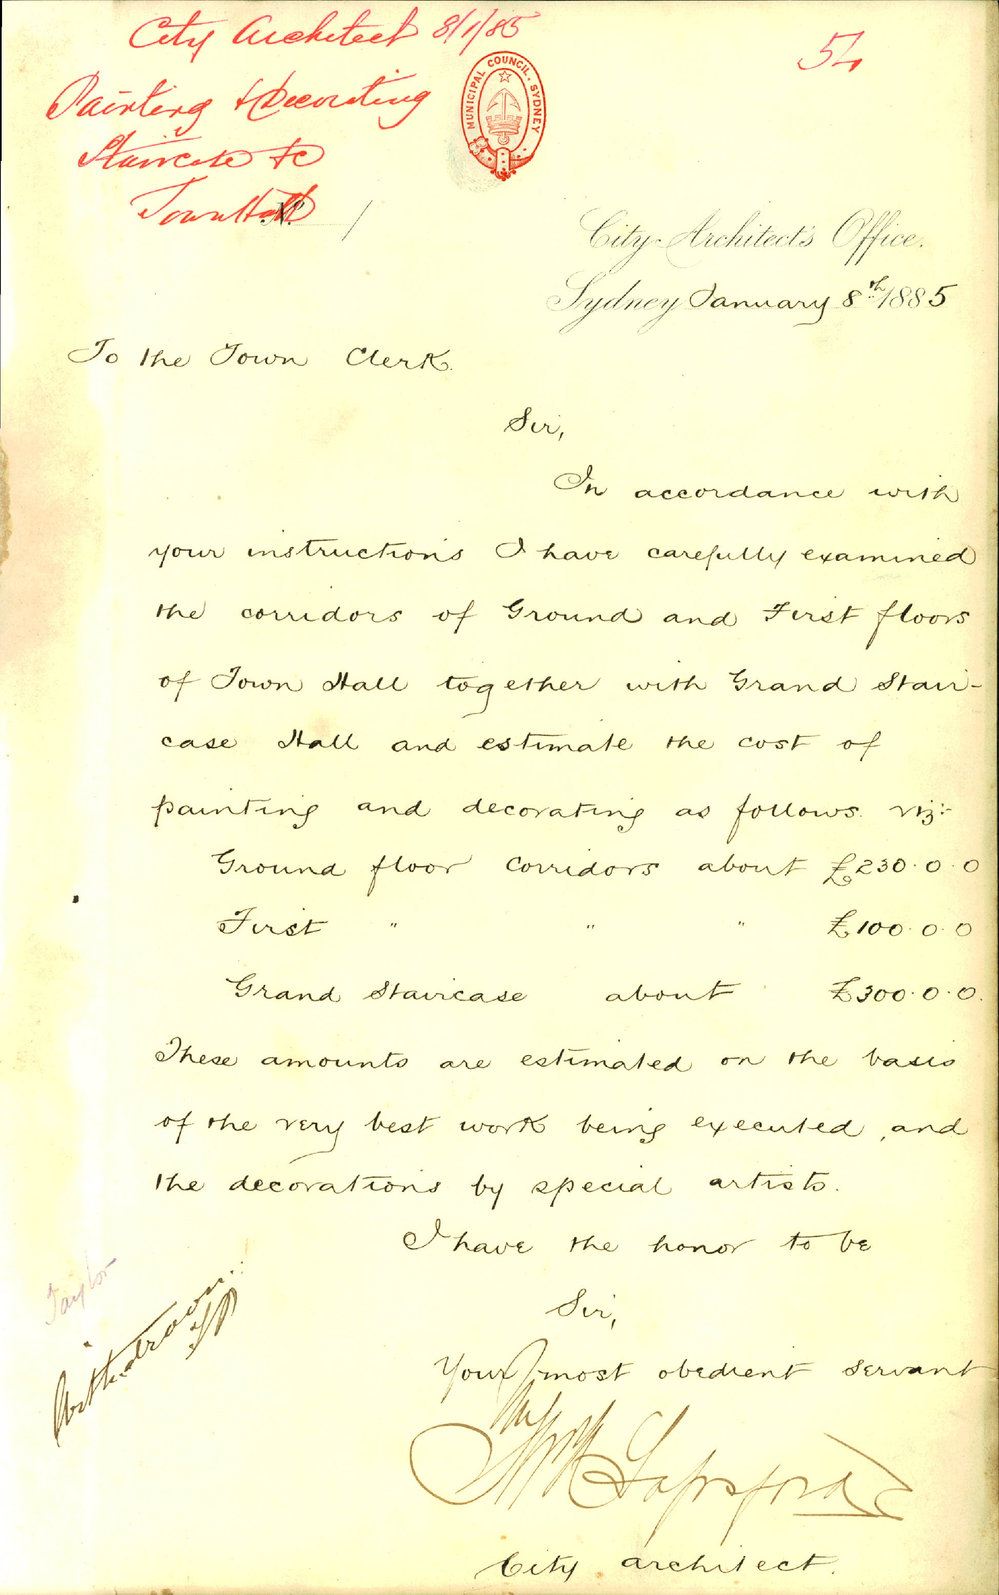 City Architect 8/1/85
54
Painting & Decorating
Staircase &c
Town Hall
MUNICIPAL COUNCIL. SYDNEY
City Architect's Office.
Sydney January 8th 1885
To the Town Clerk.
Sir,
In accordance with
your instructions I have carefully examined
the corridors of Ground and First floors
of Town Hall together with Grand Stair-
case Hall and estimate the cost of
painting and decorating as follows. viz:-
Ground floor corridors about £230.0.0
First " " " £100.0.0
Grand Staircase about £300.0.0.
These amounts are estimated on the basis
of the very best work being executed, and
the decorations by special artists.
I have the honor to be
Sir,
Your most obedient servant
Sapsford
City architect.
Taylor
Withdrawn